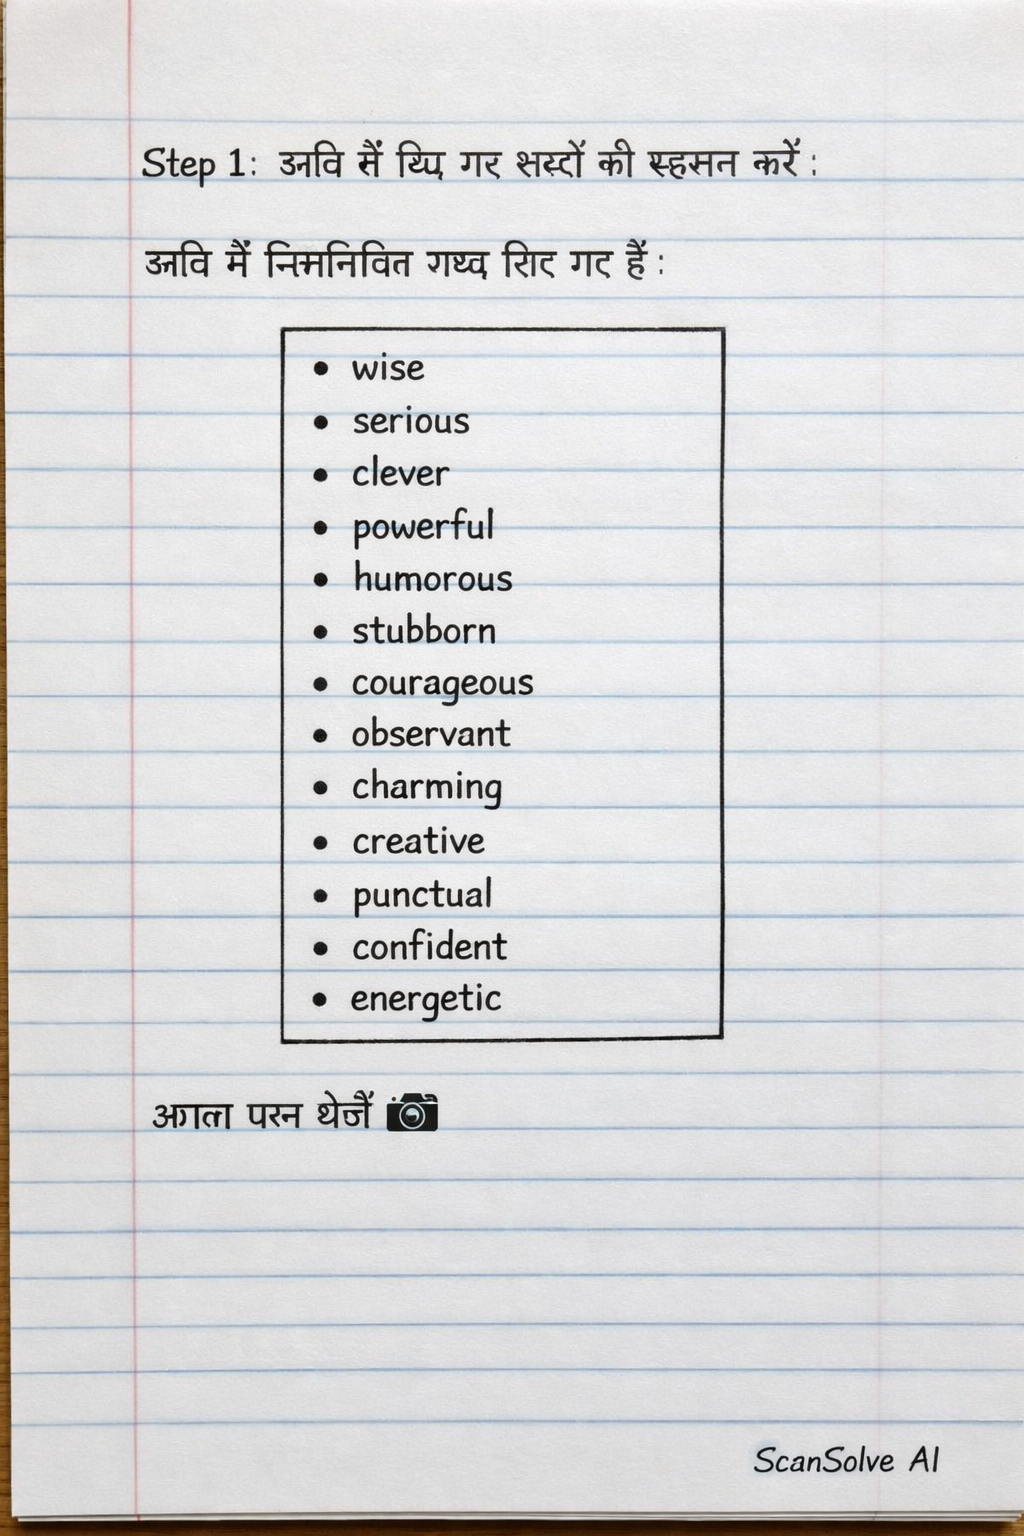 Step 1: अवि में गए की करें :
अवि में निमनिवित गए हैं :
• wise
• serious
• clever
• powerful
• humorous
• stubborn
• courageous
• observant
• charming
• creative
• punctual
• confident
• energetic
अगला
ScanSolve AI